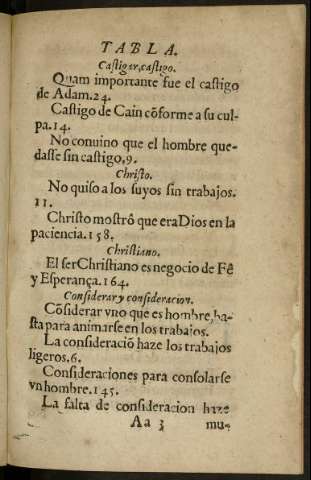 TABLA.
Castigar, castigo.
Quam importante fue el castigo
de Adam.24.
Castigo de Cain cõforme a su cul-
pa.14.
No conuino que el hombre que-
dasse sin castigo,9.
Christo.
No quiso a los suyos sin trabajos.
11.
Christo mostrô que era Dios en la
paciencia.158.
Christiano.
El ser Christiano es negocio de Fê
y Esperança.164.
Considerar y consideracion.
Cõsiderar vno que es hombre, ba-
sta para animarse en los trabajos.
La consideraciõ haze los trabajos
ligeros.6.
Consideraciones para consolarse
vn hombre.145.
La falta de consideracion haze
Aa 3 mu-